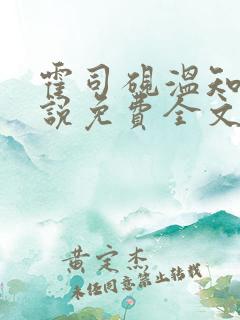 霍司砚温知
說免費全文
黄定杰
未经同意禁止转载